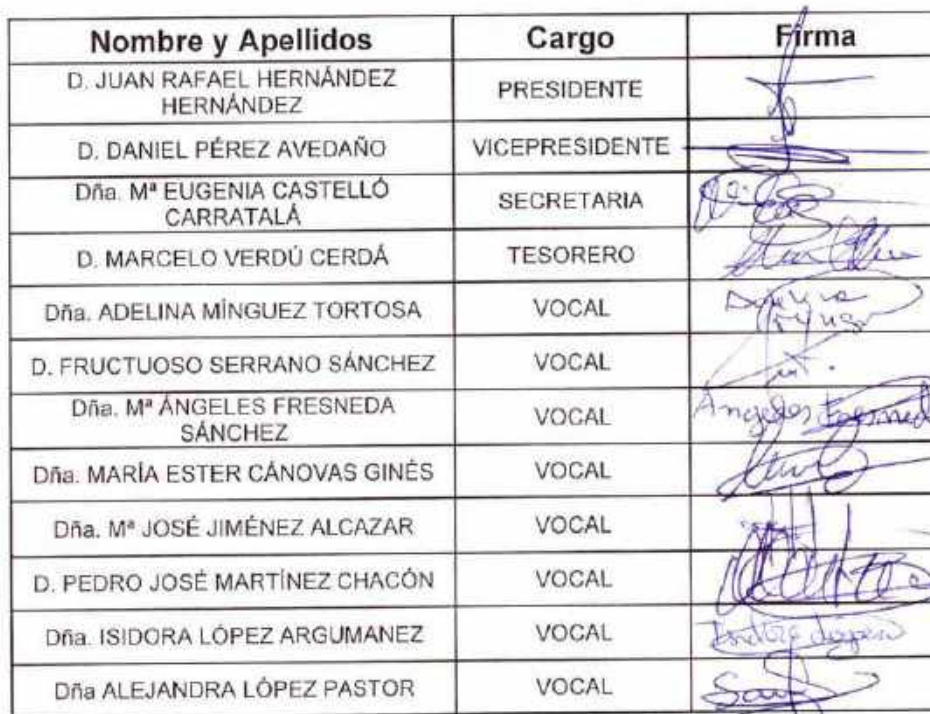 Nombre y Apellidos Cargo Firma
D. JUAN RAFAEL HERNÁNDEZ
HERNÁNDEZ
PRESIDENTE
D. DANIEL PÉREZ AVEDAÑO VICEPRESIDENTE
Dña. Mª EUGENIA CASTELLÓ
CARRATALÁ
SECRETARIA
D. MARCELO VERDÚ CERDÁ TESORERO
Dña. ADELINA MÍNGUEZ TORTOSA VOCAL
D. FRUCTUOSO SERRANO SÁNCHEZ VOCAL
Dña. Mª ÁNGELES FRESNEDA
SÁNCHEZ
VOCAL Angeles Fresned
Dña. MARÍA ESTER CÁNOVAS GINÉS VOCAL
Dña. Mª JOSÉ JIMÉNEZ ALCAZAR VOCAL
D. PEDRO JOSÉ MARTÍNEZ CHACÓN VOCAL
Dña. ISIDORA LÓPEZ ARGUMANEZ VOCAL
Dña ALEJANDRA LÓPEZ PASTOR VOCAL